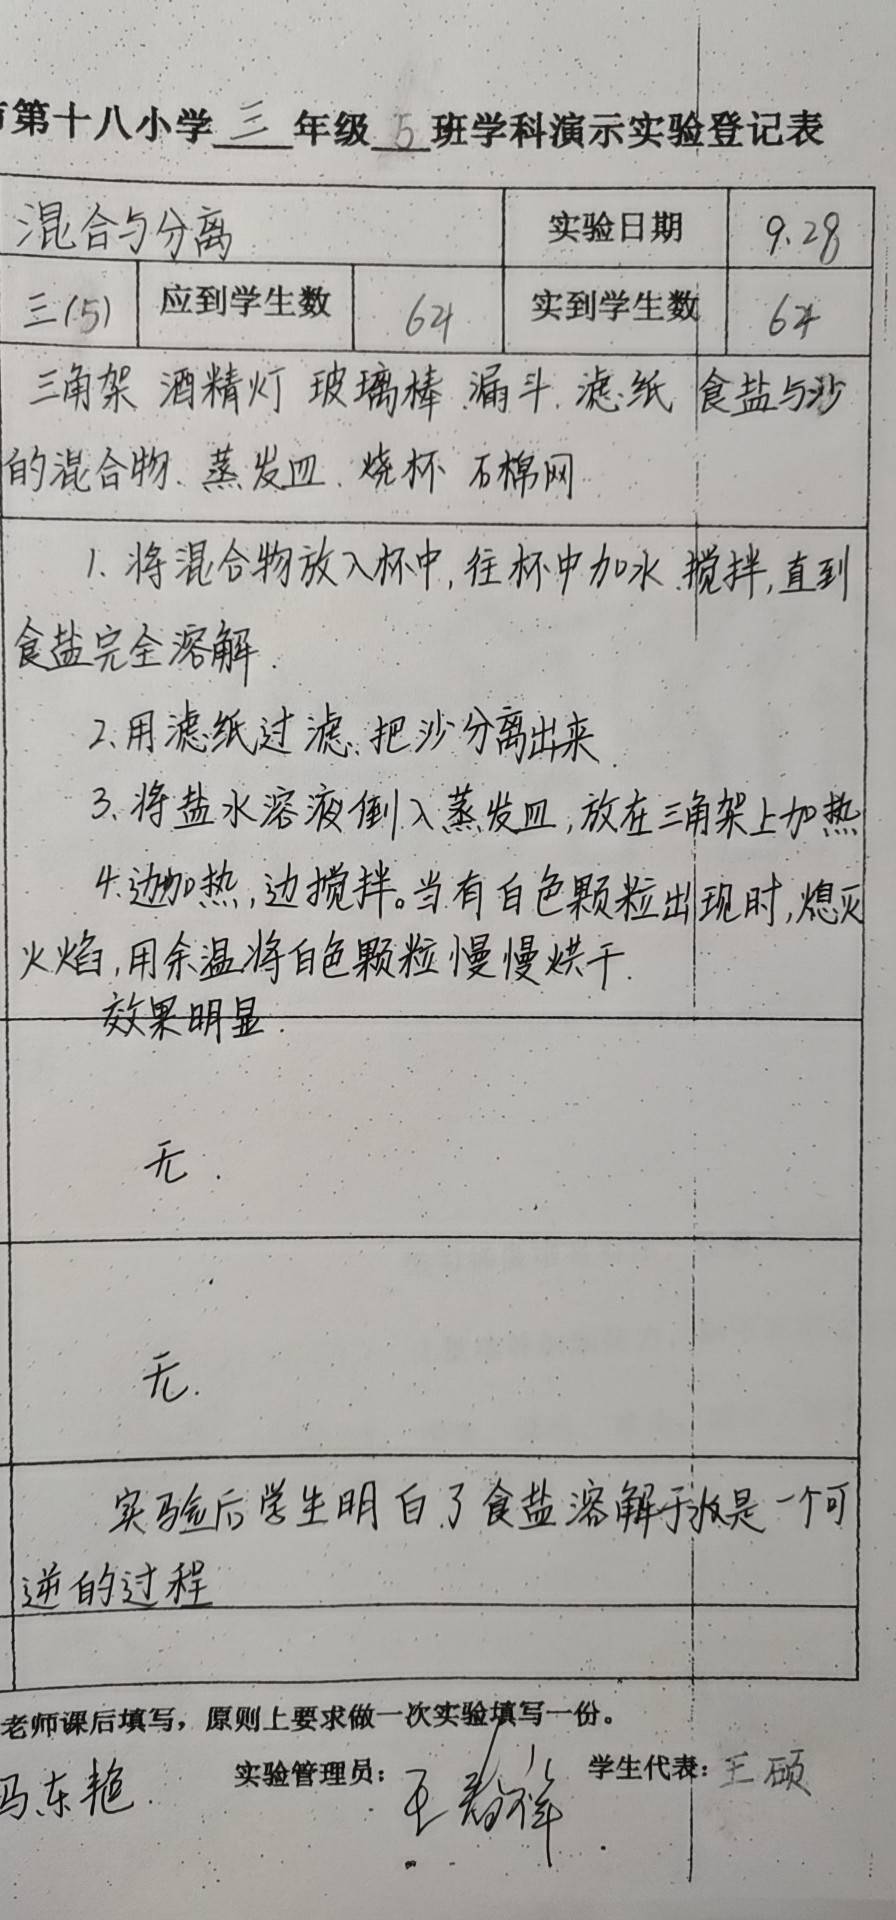 第十八小学三年级5班学科演示实验登记表
混合与分离 实验日期 9.28
三(5) 应到学生数 64 实到学生数 64
三角架 酒精灯 玻璃棒.漏斗.滤纸 食盐与沙
的混合物.蒸发皿.烧杯 石棉网
1.将混合物放入杯中,往杯中加水.搅拌,直到
食盐完全溶解.
2.用滤纸过滤.把沙分离出来.
3.将盐水溶液倒入蒸发皿,放在三角架上加热
4.边加热,边搅拌。当有白色颗粒出现时,熄灭
火焰,用余温将白色颗粒慢慢烘干.
效果明显.
无.
无.
实验后学生明白了食盐溶解于水是一个可
逆的过程
老师课后填写，原则上要求做一次实验填写一份。
冯东艳 实验管理员： 王 祥 学生代表：王硕